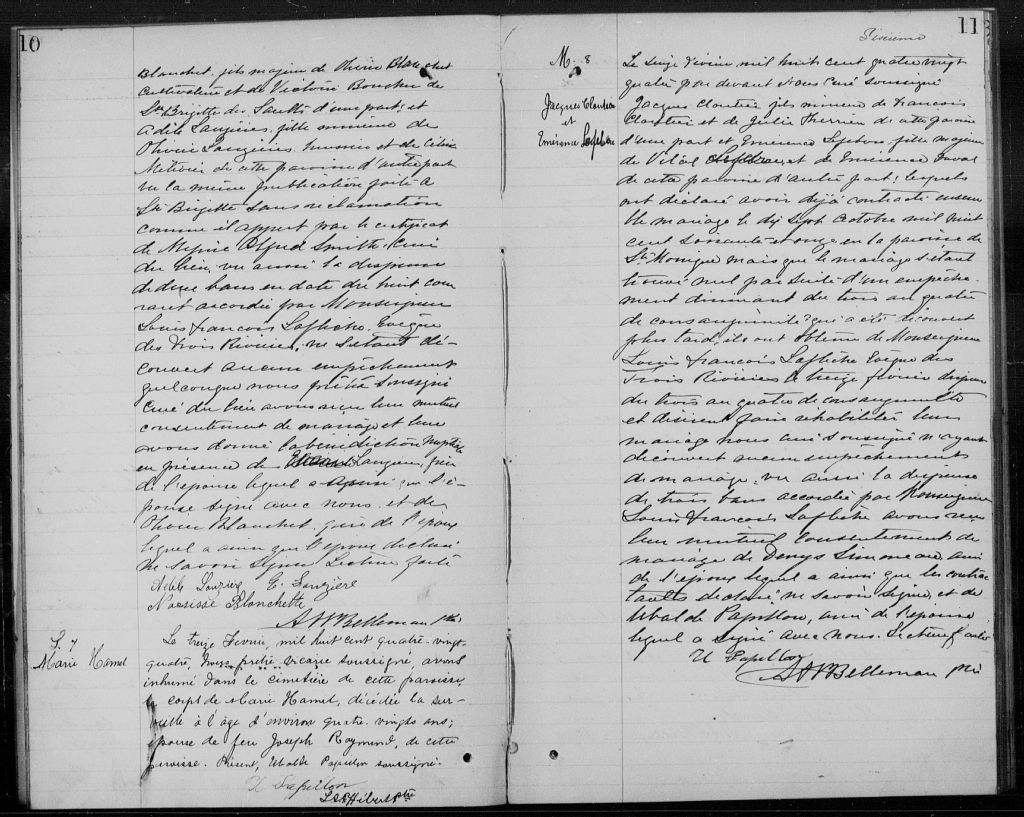 10
Blanchet, fils majeur de Olivier Blanchet
Cultivateur et de Victoire Boucher de
Ste Brigitte des Saults d'une part; et
Adèle Lauzière, fille mineure de
Olivier Lauzière, et de
Métivier de cette paroisse d'autre part
vu la même publication faite à
Ste Brigitte sans réclamation
comme il appert par le certificat
de Messire Alfred Smith, Curé
du lieu, vu aussi la dispense
de deux bans en date du huit cou
rant accordée par Monseigneur
Louis François Laflèche, Evêque
des Trois Rivières, ne s'étant dé-
couvert aucun empêchement
quelconque nous prêtre soussigné
Curé du lieu avons reçu leur mutuel
consentement de mariage et leur
avons donné la bénédiction nuptiale
en présence de Lauzière, frère
de l'épouse lequel a que l'é-
pouse signé avec nous et de
Olivier Blanchet, père de l'époux
lequel a ainsi que l'époux déclaré
ne savoir signer. Lecture faite
Adèle Lauzière E. Lauzière
Narcisse Blanchette
A N Bellemare Ptre
S. 7
Marie Hamel
Le treize Fevrier, mil huit cent quatre-vingt-
quatre, Nous prêtre vicaire soussigné, avons
inhumé dans le cimetière de cette paroisse,
le corps de Marie Hamel, décédée la sur-
veille à l'âge d'environ quatre-vingts ans;
épouse de feu Joseph Raymond, de cette
paroisse. Présent, Ubalde Papillon soussigné.
U Papillon
Hébert Ptre
11
M. 8
Jacques Cloutier
et
Emérence Lefebvre
Le seize Février mil huit cent quatre vingt
quatre par devant nous Curé soussigné
Jacques Cloutier fils mineur de Francois
Cloutier et de Julie Therrien de cette paroisse
d'une part et Emérence Lefebvre fille majeure
de Vital Lefebvre et de Emérence Duval
de cette paroisse d'autre part; lesquels
ont déclaré avoir déjà contracté ensem
ble mariage le dix sept Octobre mil huit
cent soixante et onze en la paroisse de
Ste Monique mais que le mariage s'étant
trouvé nul par suite d'un empêche-
ment dirimant du trois au quatre
de consanguinité qui a été découvert
plus tard, ils ont obtenu de Monseigneur
Louis François Laflèche Evêque des
Trois Rivières le treize février dispense
du trois au quatre de consanguinité
et désirent faire réhabiliter leur
mariage nous curé soussigné n'ayant
découvert aucun empêchement
de mariage, vu aussi la dispense
de trois bans accordée par Monseigneur
Louis François Laflèche avons reçu
leur mutuel consentement de
mariage de Denys Simoneau, ami
de l'époux lequel a ainsi que les contrac
tants déclaré ne savoir signer, et de
Ubalde Papillon, ami de l'épouse
lequel a signé avec nous. Lecture faite
U Papillon
A N Bellemare Ptre